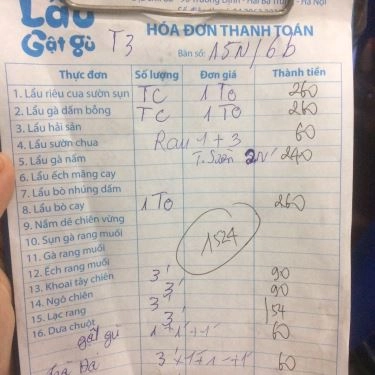 Lẩu
Gật gù
T3
HÓA ĐƠN THANH TOÁN
Bàn số: A5N/6b
Thực đơn Số lượng Đơn giá Thành tiền
1. Lẩu riêu cua sườn sụn TC 1 TO 260
2. Lẩu gà dấm bỗng TC 1 TO 260
3. Lẩu hải sản
4. Lẩu sườn chua Rau 1+3 60
5. Lẩu gà nấm T. Sườn 2N' 240
6. Lẩu ếch măng cay
7. Lẩu bò nhúng dấm
8. Lẩu bò cay 1 TO 260
9. Nầm dê chiên vừng
10. Sụn gà rang muối 1524
11. Gà rang muối
12. Ếch rang muối
13. Khoai tây chiên 3' 90
14. Ngô chiên 3' 90
15. Lạc rang 3' 154
16. Dưa chuột 3'
gật gù 1'+1'+1' 60
Trà Đá 3'+1+1+1' 60